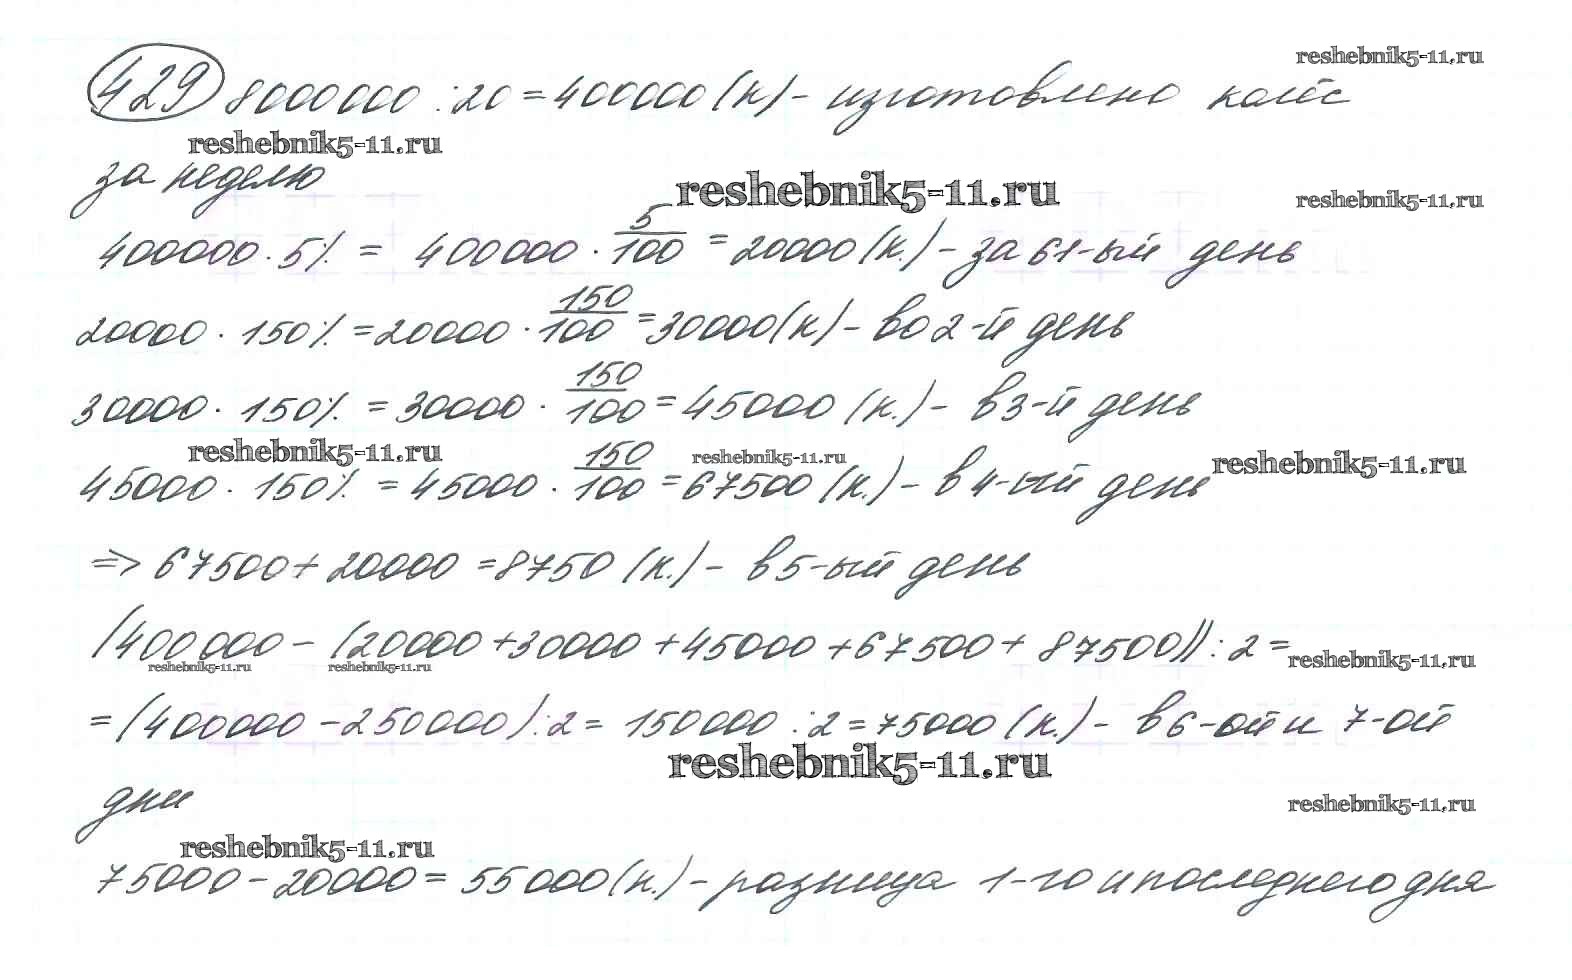 429 8000000 : 20 = 400000 (к) - изготовлено колёс
reshebnik5-11.ru
reshebnik5-11.ru
за неделю
reshebnik5-11.ru
reshebnik5-11.ru
400000 · 5% = 400000 · 5/100 = 20000 (к.) - за 61-ый день
20000 · 150% = 20000 · 150/100 = 30000 (к) - во 2-й день
30000 · 150% = 30000 · 150/100 = 45000 (к.) - в 3-й день
reshebnik5-11.ru
reshebnik5-11.ru
reshebnik5-11.ru
45000 · 150% = 45000 · 150/100 = 67500 (к.) - в 4-ый день
=> 67500 + 20000 = 8750 (к.) - в 5-ый день
(400000 - (20000 + 30000 + 45000 + 67500 + 87500)) : 2 =
reshebnik5-11.ru
reshebnik5-11.ru
reshebnik5-11.ru
= (400000 - 250000) : 2 = 150000 : 2 = 75000 (к.) - в 6-ой и 7-ой
reshebnik5-11.ru
дни
reshebnik5-11.ru
reshebnik5-11.ru
75000 - 20000 = 55000 (к.) - разница 1-го и последнего дня